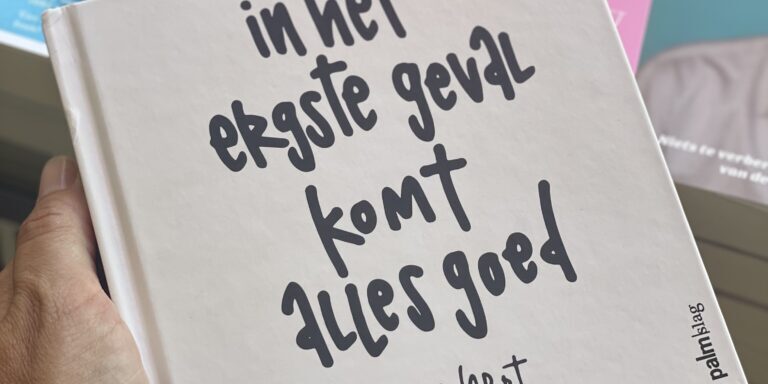 in het
ergste geval
komt
alles goed
palm|slag
Niets te
van de